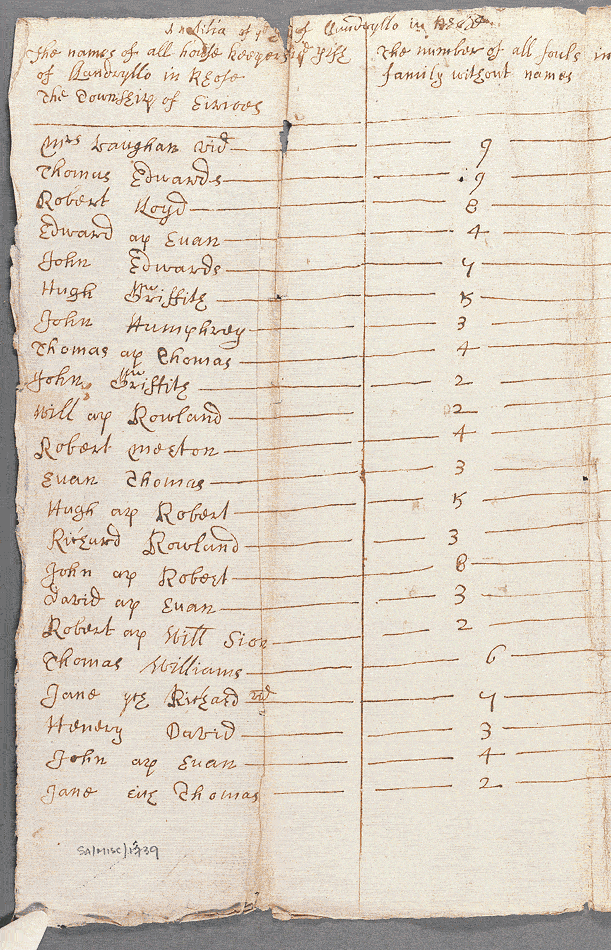 of Llandryllo in
The names of all house keepers
of Llandryllo in Rhose
The Township of Eirioes
The number of all souls in
family without names
Mrs Vaughan vid 9
Thomas Edwards 9
Robert Lloyd 8
Edward ap Evan 4
John Edwards 7
Hugh Griffith 5
John Humphrey 3
Thomas ap Thomas 4
John Griffith 2
Will ap Rowland 2
Robert Meston 4
Evan Thomas 3
Hugh ap Robert 5
Richard Rowland 3
John ap Robert 8
David ap Evan 3
Robert ap Will Sion 2
Thomas Williams 6
Jane ych Richard vid 7
Henery David 3
John ap Evan 4
Jane Thomas 2
SA/MISC/1339